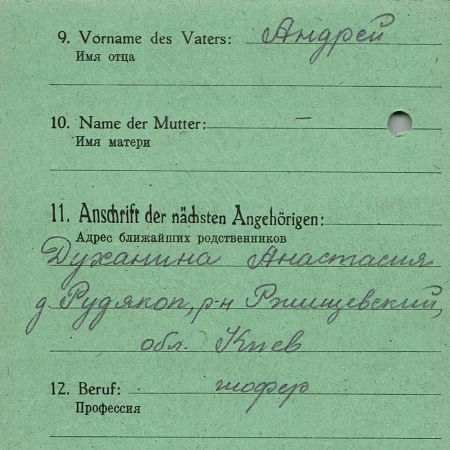 9. Vorname des Vaters: Андрей
Имя отца
10. Name der Mutter: —
Имя матери
11. Anschrift der nächsten Angehörigen:
Адрес ближайших родственников
Духанина Анастасия
д. Рудякоп, р-н Ржищевский,
обл. Киев
12. Beruf: шофер
Профессия